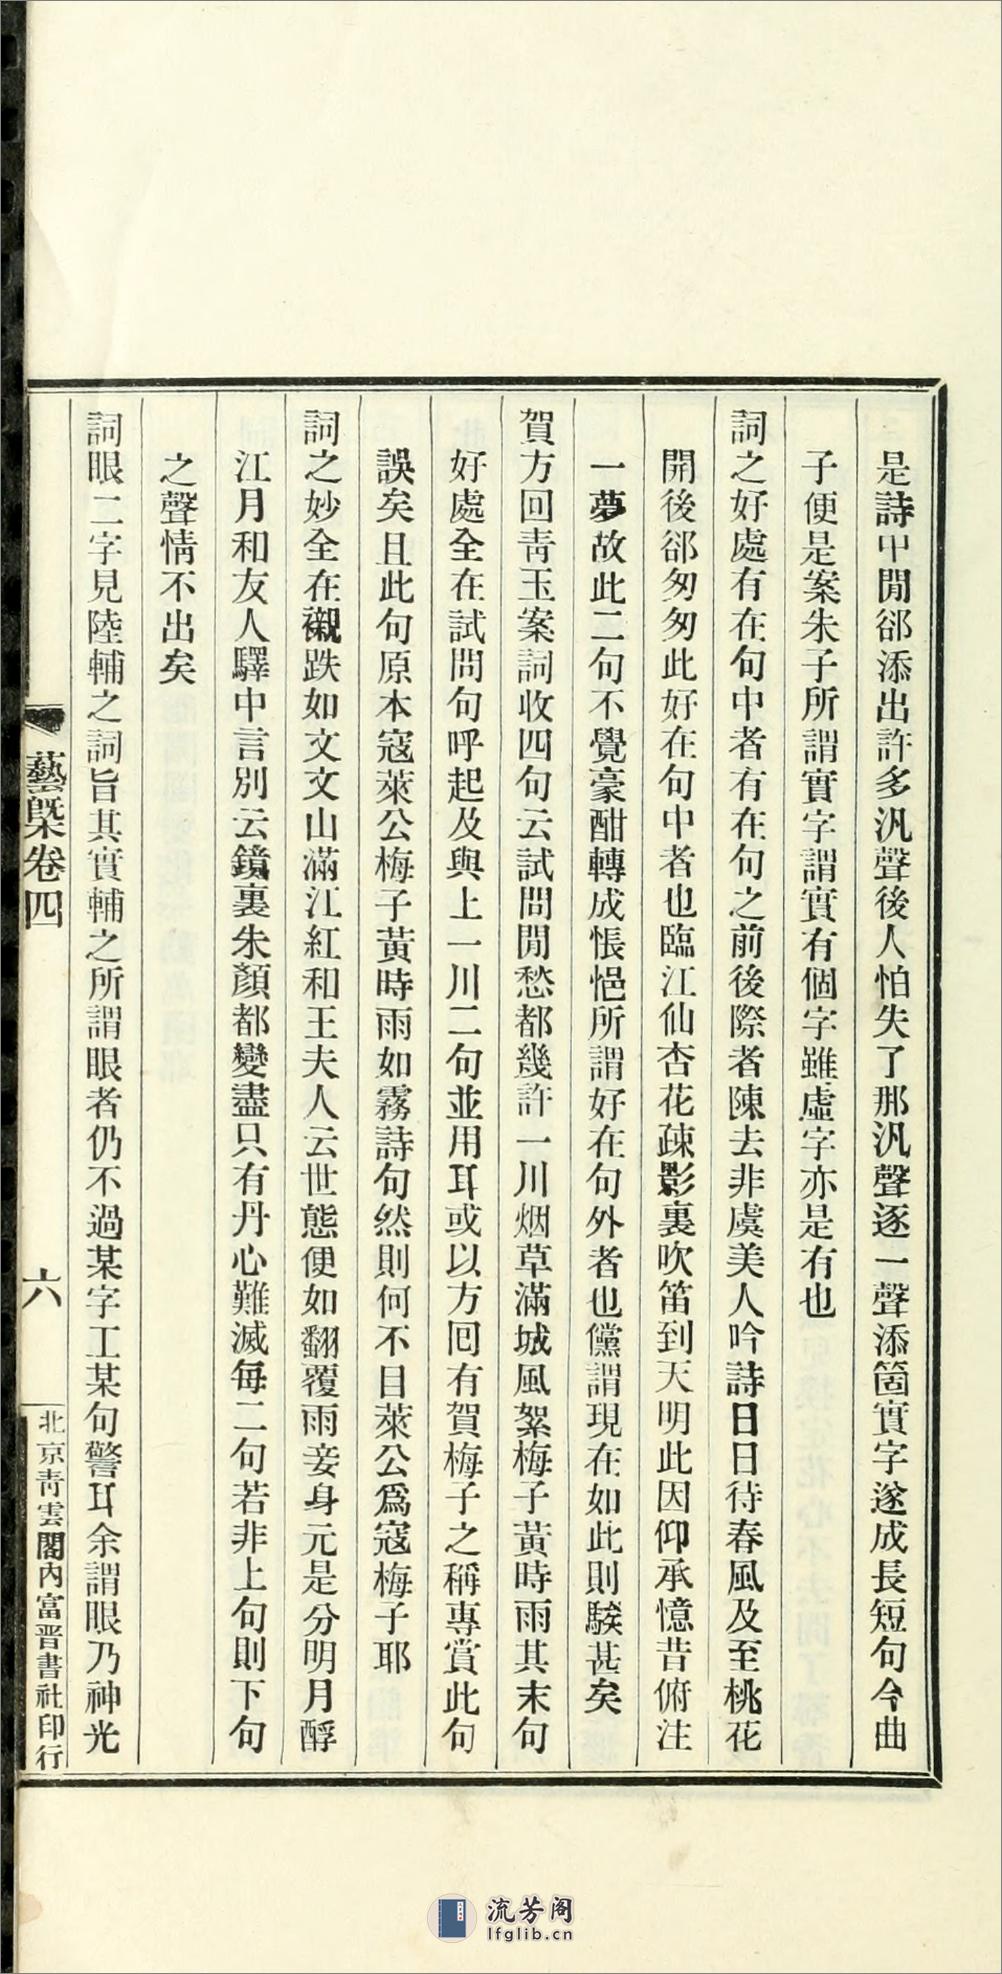 是詩中閒郤添出許多汎聲後人怕失了那汎聲逐一聲添箇實字遂成長短句今曲
子便是案朱子所謂實字謂實有個字雖虛字亦是有也
詞之好處有在句中者有在句之前後際者陳去非虞美人吟詩日日待春風及至桃花
開後郤匆匆此好在句中者也臨江仙杏花疎影裏吹笛到天明此因仰承憶昔俯注
一夢故此二句不覺豪酣轉成悵悒所謂好在句外者也儻謂現在如此則騃甚矣
賀方回靑玉案詞收四句云試問閒愁都幾許一川烟草滿城風絮梅子黃時雨其末句
好處全在試問句呼起及與上一川二句並用耳或以方囘有賀梅子之稱專賞此句
誤矣且此句原本寇萊公梅子黃時雨如霧詩句然則何不目萊公爲寇梅子耶
詞之妙全在襯跌如文文山滿江紅和王夫人云世態便如翻覆雨妾身元是分明月酹
江月和友人驛中言別云鏡裏朱顏都變盡只有丹心難滅每二句若非上句則下句
之聲情不出矣
詞眼二字見陸輔之詞旨其實輔之所謂眼者仍不過某字工某句警耳余謂眼乃神光
藝槩卷四
六
北京靑雲閣內富晋書社印行
流芳阁
lfglib.cn